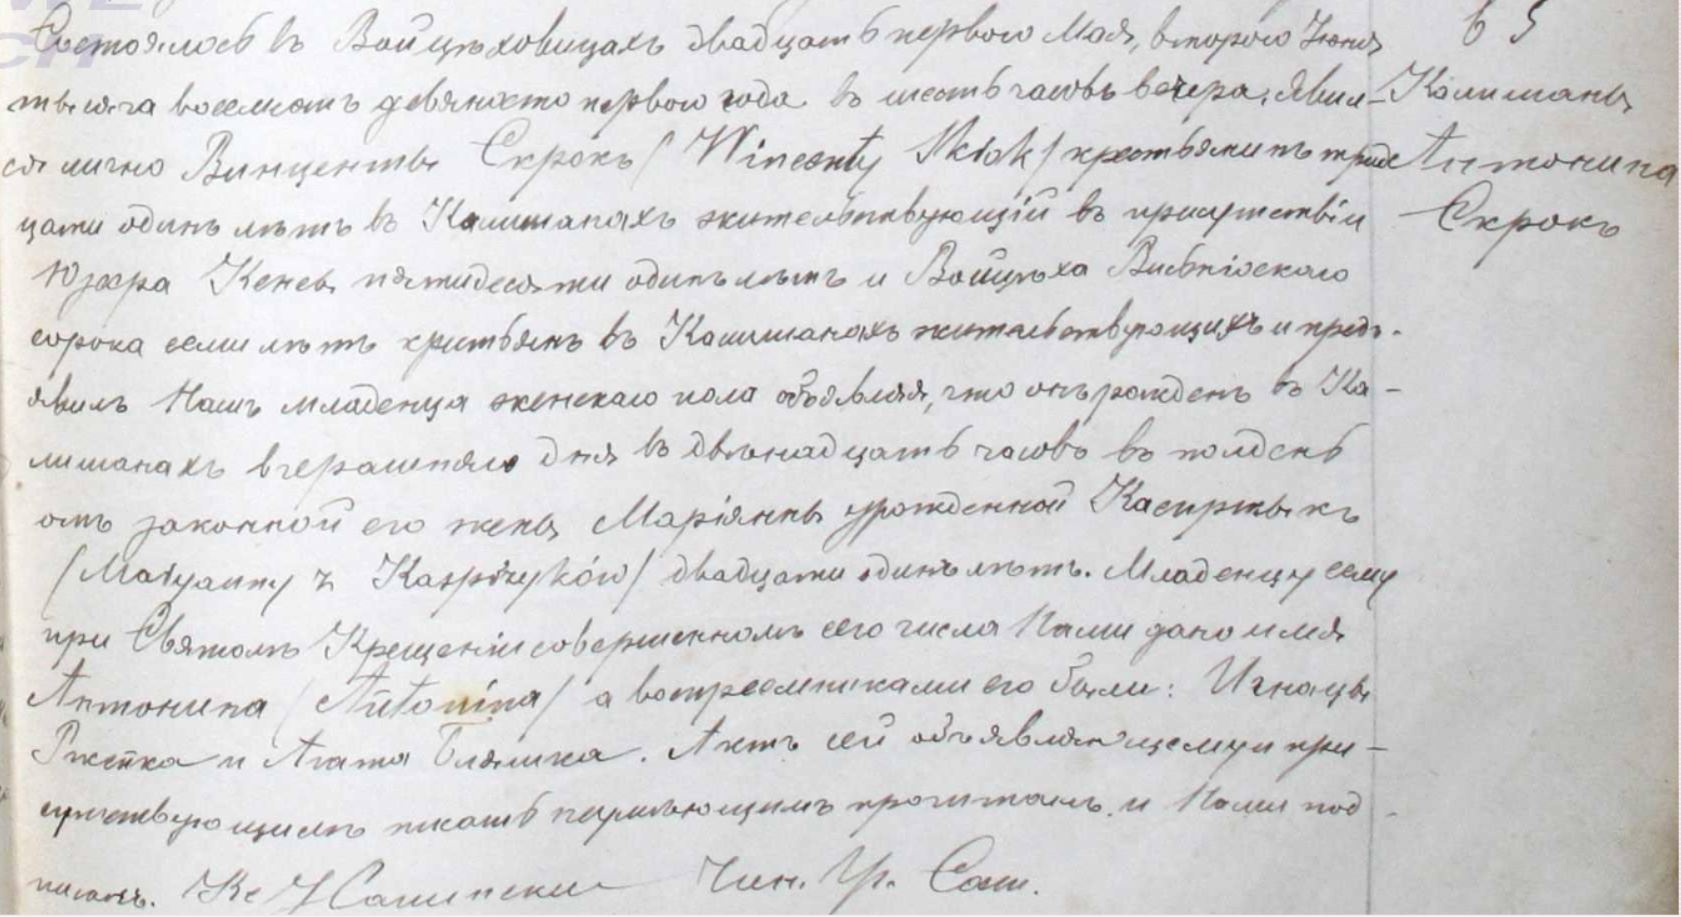 65
Калишаны
Антонина
Скрокъ
Состоялось въ Войцѣховицахъ двадцать первого Мая, второго Іюня
тысяча восемсотъ девяносто первого года въ шесть часовъ вечера. Яви-
ся лично Винценты Скрокъ /Wincenty Skrok/ крестьянинъ трид-
цати одинъ лѣтъ въ Калишанахъ жительствующій въ присутствіи
Юзефа сорока Кенсы пятидесяти одинъ лѣтъ и Войцѣха
сорока семи лѣтъ крестьянъ въ Калишанахъ жительствующихъ и предъ-
явилъ Намъ младенца женскаго пола объявляя, что онъ рожденъ въ Ка-
лишанахъ вчерашняго дня въ двѣнадцать часовъ въ полдень
отъ законной его жены Маріянны урожденной Каспржыкъ
/Maryanny z Kasprzyków/ двадцати одинъ лѣтъ. Младенцу сему
при Святомъ Крещеніи совершенномъ сего числа Нами дано имя
Антонина /Antonina/ а воспреемниками его были: Игнацы
и Агата. Актъ сей объявляющему и при-
сутствующимъ писать неумѣющимъ прочитанъ и Нами под-
писанъ. Кс Чин. Гр. Сост.